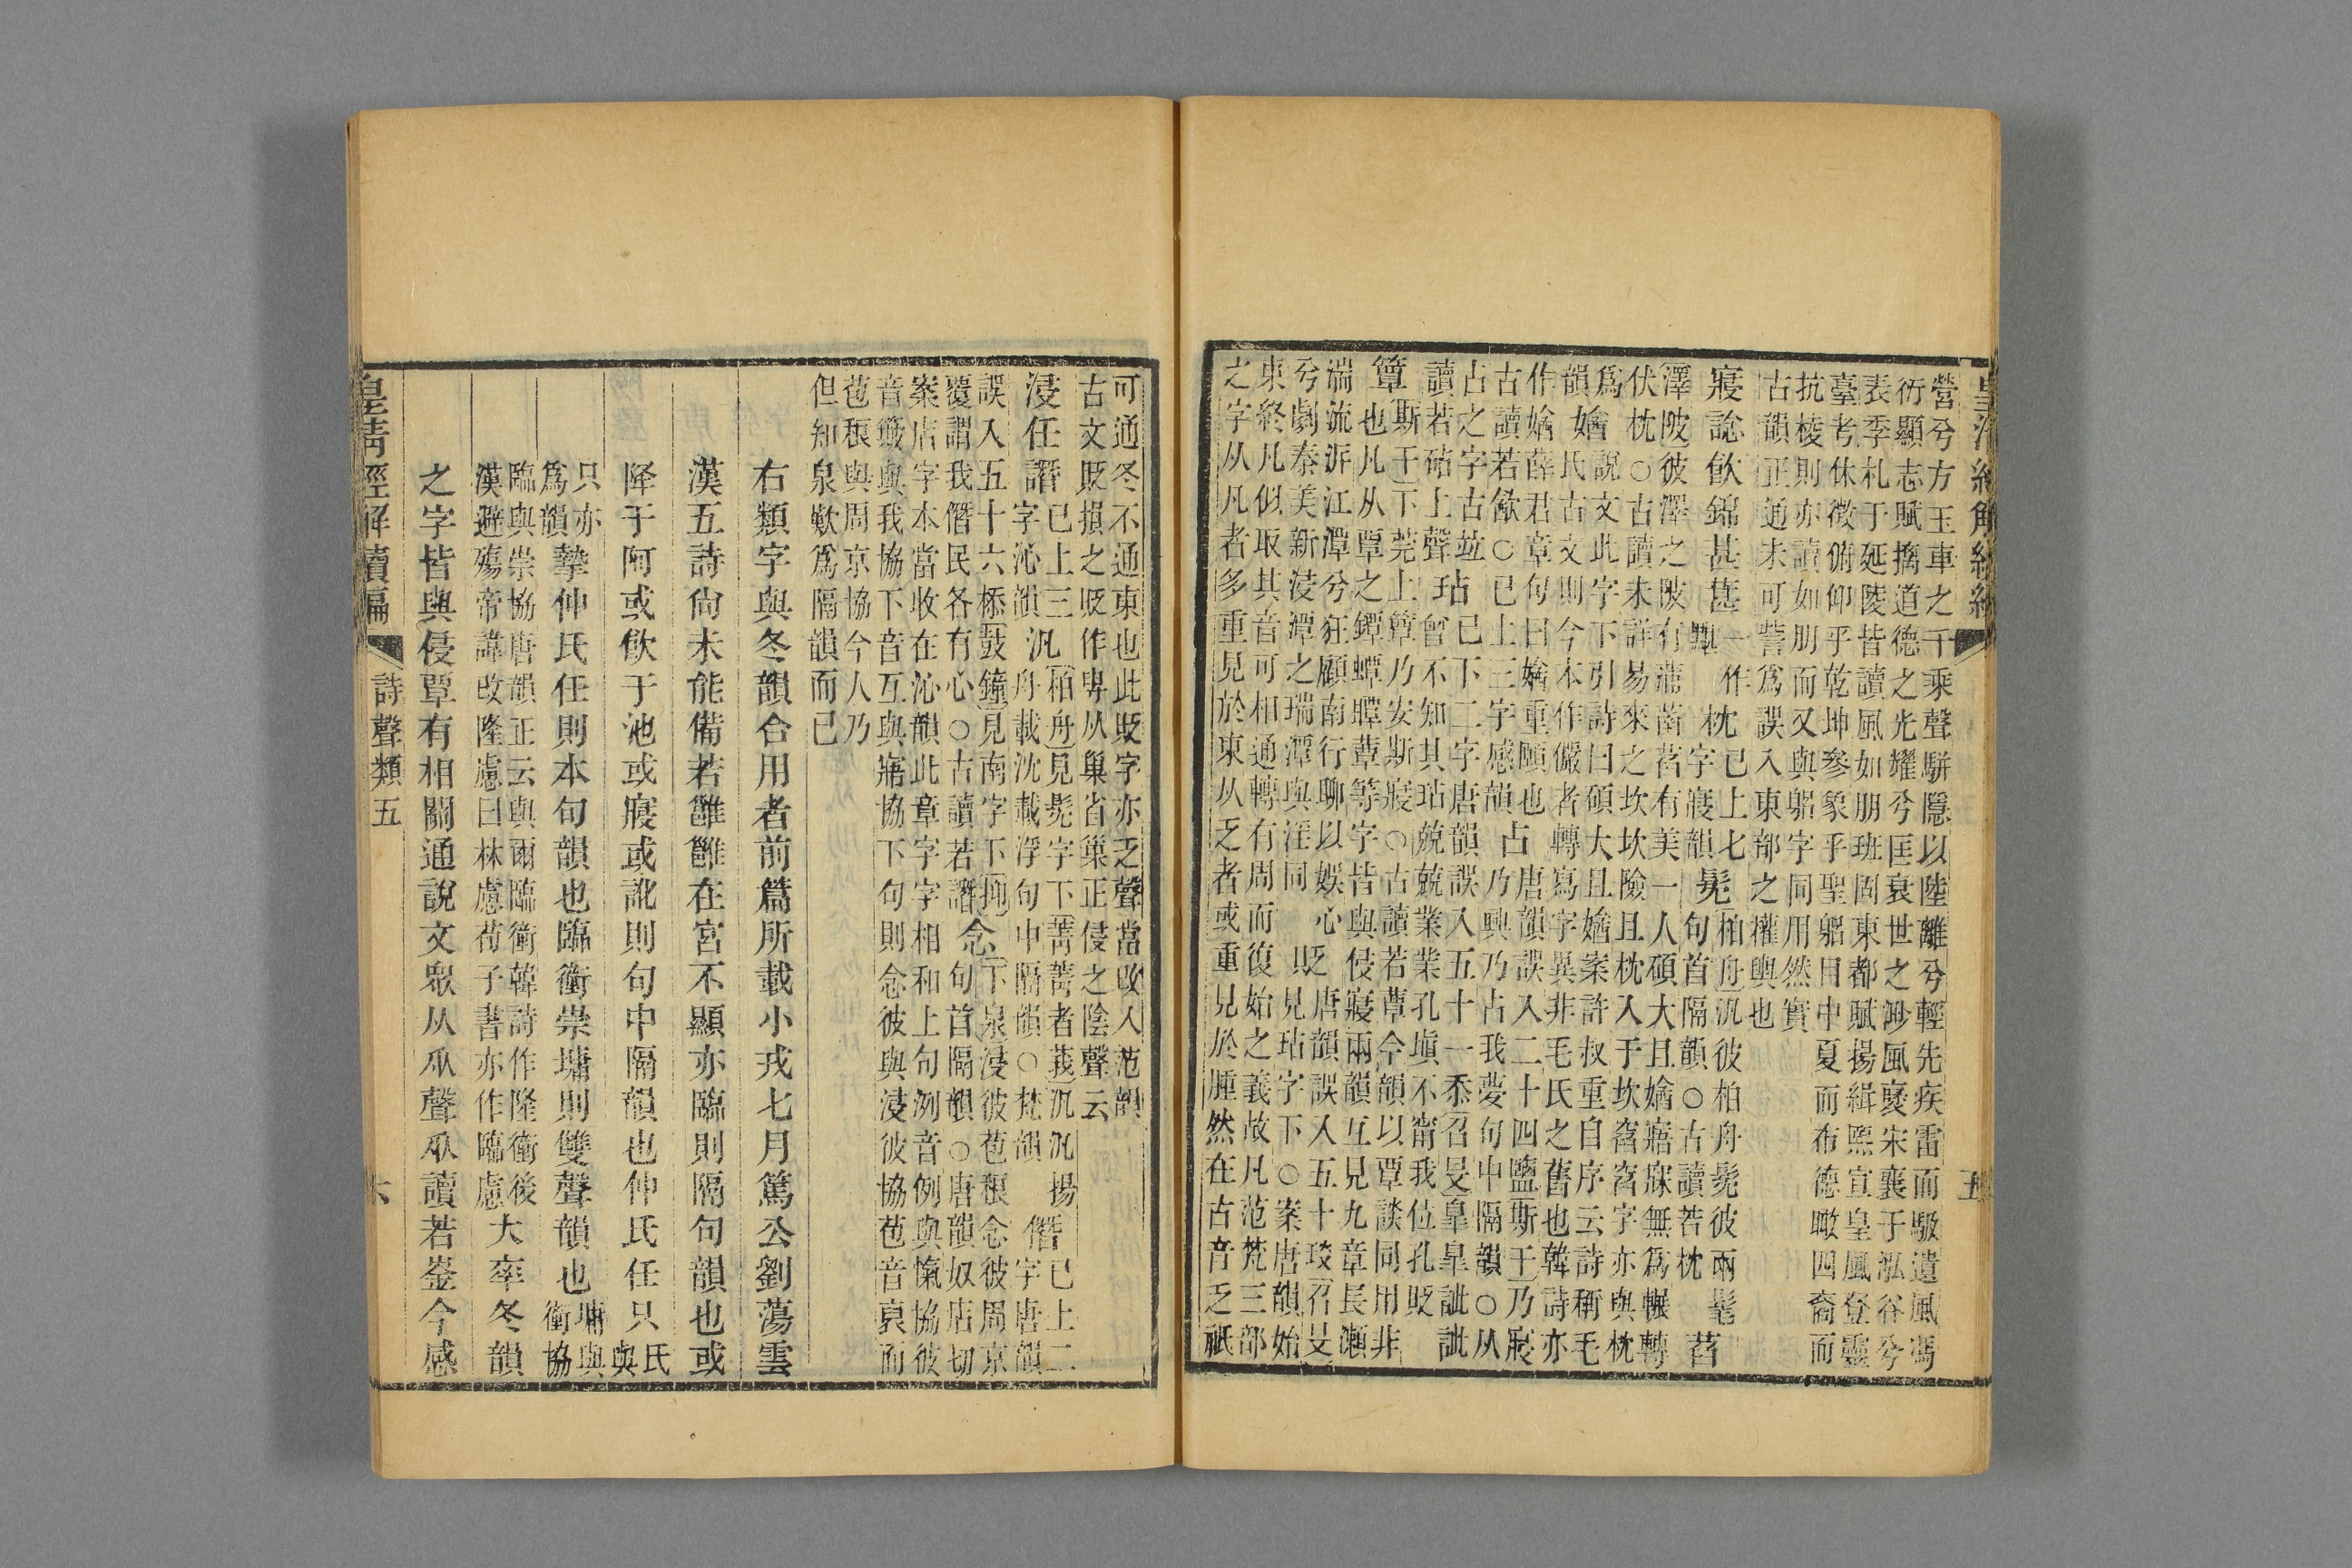 營兮方玉車之千乘聲駢隱以陸離兮輕先疾雷而馺遺風馮
衍顯志賦摛道德之光耀兮匡衰世之渺風襃宋襄于泓谷兮
表季札于延陵皆讀風如朋班固東都賦揚緝熙宣皇風登靈
臺考休徵俯仰乎乾坤參象乎聖躬目中夏而布德瞰四裔而
抗棱則亦讀如朋而又與躬字同用然實
古韻正通未可訾爲誤入東部之權輿也
寢諗飲錦甚葚
一作
黮
枕
已上七
字寢韻
髧
柏舟汎彼柏舟髧彼兩髦
句首隔韻○古讀若枕
萏
澤陂彼澤之陂有蒲菡萏有美一人碩大且㜝寤寐無爲輾轉
伏枕○古讀未詳易來之坎坎險且枕入于坎窞窞字亦與枕
爲
韻
㜝
說文此字下引詩曰碩大且㜝案許叔重自序云詩稱毛
氏古文則今本作儼者轉寫字異非毛氏之舊也韓詩亦
作㜝薛君章句曰㜝重頤也
古讀若歛○已上三字感韻
占
唐韻誤入二十四鹽斯干乃寢
乃興乃占我夢句中隔韻○从
占之字古竝
讀若砧上聲
玷
已下二字唐韻誤入五十一忝召旻皐皐訿訿
曾不知其玷兢兢業業孔塡不甯我位孔貶
簟
斯干下莞上簟乃安斯寢○古讀若蕈今韻以覃談同用非
也凡从覃之鐔蟫瞫蕈等字皆與侵寢兩韻互見九章長瀨
湍流泝江潭兮狂顧南行聊以娛心
兮劇秦美新浸潭之瑞潭與淫同
貶
唐韻誤入五十琰召旻
見玷字下○案唐韻始
東終凡似取其音可相通轉有周而復始之義故凡范梵三部
之字从凡者多重見於東从乏者或重見於腫然在古音乏祇
可通冬不通東也此貶字亦乏聲當改入范韻
古文貶損之貶作㝵从巢省巢正侵之陰聲云
浸任譖
已上三
字沁韻
汎
柏舟見髧字下菁菁者莪汎汎揚
舟載沈載浮句中隔韻○梵韻
僭
已上二
字唐韻
誤入五十六㮇鼓鐘見南字下抑
覆謂我僭民各有心○古讀若譖
念
下泉浸彼苞稂念彼周京
句首隔韻○唐韻奴店切
案店字本當收在沁韻此章字字相和上句洌音例與愾協彼
音㢤與我協下音互與寤協下句則念彼與浸彼協苞音裒而
苞稂與周京協今人乃
但知泉歎爲隔韻而已
右類字與冬韻合用者前篇所載小戎七月篤公劉蕩雲
漢五詩尙未能備若雝雝在宮不顯亦臨則隔句韻也或
降于阿或飲于池或寢或訛則句中隔韻也仲氏任只
氏
與
只亦
爲韻
摯仲氏任則本句韻也臨衝崇墉則雙聲韻也
墉與
衝協
臨與崇協唐韻正云與爾臨衝韓詩作隆衝後
漢避殤帝諱改隆慮曰林慮荀子書亦作臨慮
大率冬韻
之字皆與侵覃有相關通說文眾从㐺聲㐺讀若崟今感
皇清經解續編
詩聲類五
六
五